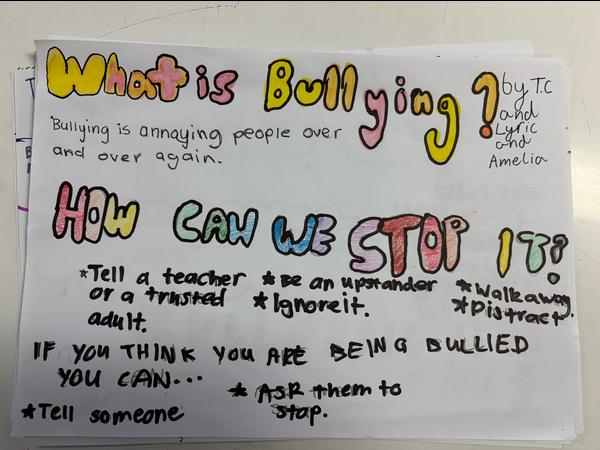 What is Bullying?
by T.c
and
Lyric
and
Amelia
Bullying is annaying people over
and over again.
HOW CAN WE STOP IT?
*Tell a teacher
or a trusted
adult.
*Be an upstander
*Ignore it.
*Walk away.
*Distract
IF YOU THINK YOU ARE BEING BULLIED
YOU CAN...
*Tell someone
*ASK them to
stop.